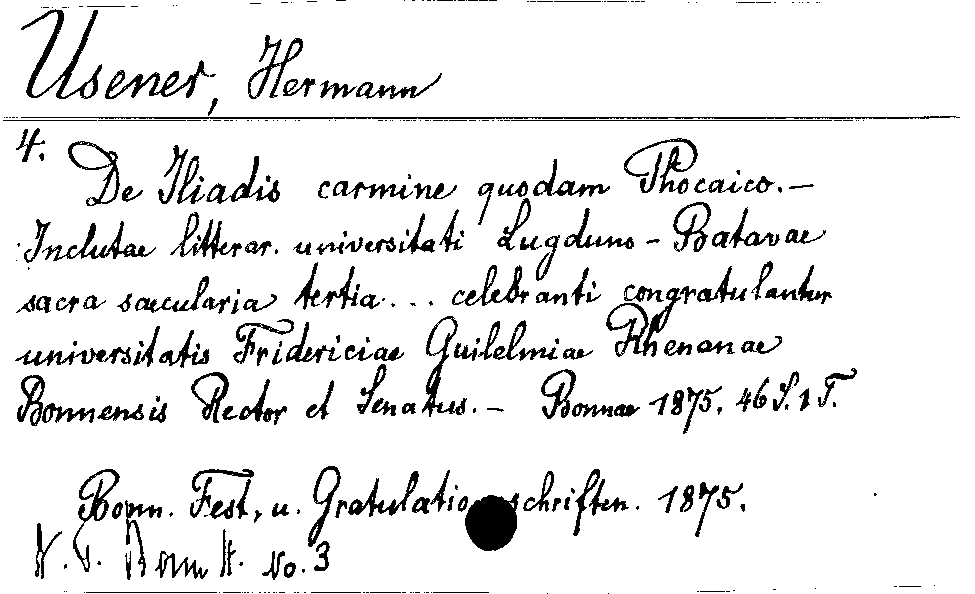 Usener, Hermann
4.
De Iliadis carmine quodam Phocaico. —
Inclutae litterar. universitati Lugduno - Batavae
sacra saecularia tertia ... celebranti congratulantur
universitatis Fridericiae Guilelmiae Rhenanae
Bonnensis Rector et Senatus. — Bonnae 1875. 46 S. 1 T.
Bonn. Fest, u. Gratulationsschriften. 1875.
Bonn No. 3